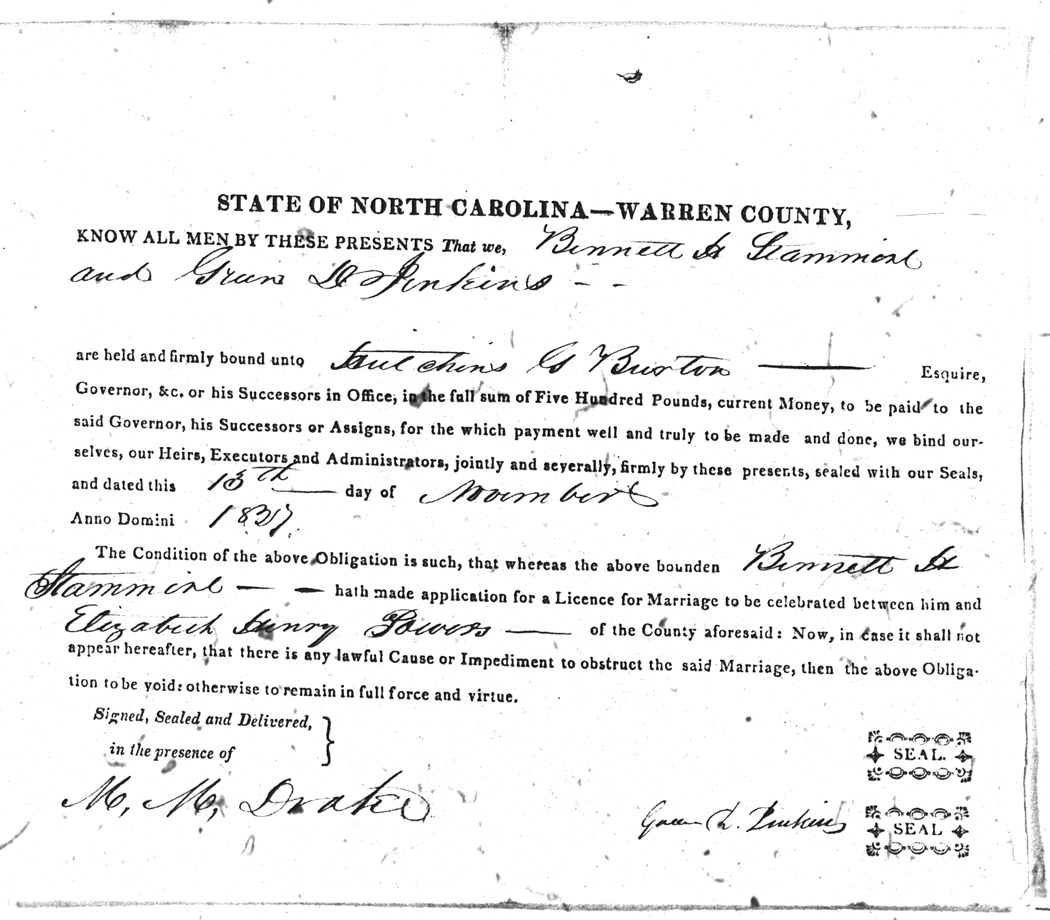 STATE OF NORTH CAROLINA—WARREN COUNTY,
KNOW ALL MEN BY THESE PRESENTS That we, Bennett H Stammire
and Green D Jenkins - -
are held and firmly bound unto Hutchins G Burton — Esquire,
Governor, &c. or his Successors in Office, in the full sum of Five Hundred Pounds, current Money, to be paid to the
said Governor, his Successors or Assigns, for the which payment well and truly to be made and done, we bind our-
selves, our Heirs, Executors and Administrators, jointly and severally, firmly by these presents, sealed with our Seals,
and dated this 13th — day of November
Anno Domini 1827.
The Condition of the above Obligation is such, that whereas the above bounden Bennett H
Stammire — — hath made application for a Licence for Marriage to be celebrated between him and
Elizabeth Henry Powers — of the County aforesaid: Now, in case it shall not
appear hereafter, that there is any lawful Cause or Impediment to obstruct the said Marriage, then the above Obliga-
tion to be void: otherwise to remain in full force and virtue.
Signed, Sealed and Delivered,
in the presence of
SEAL.
M. M. Drake
Green D. Jenkins SEAL